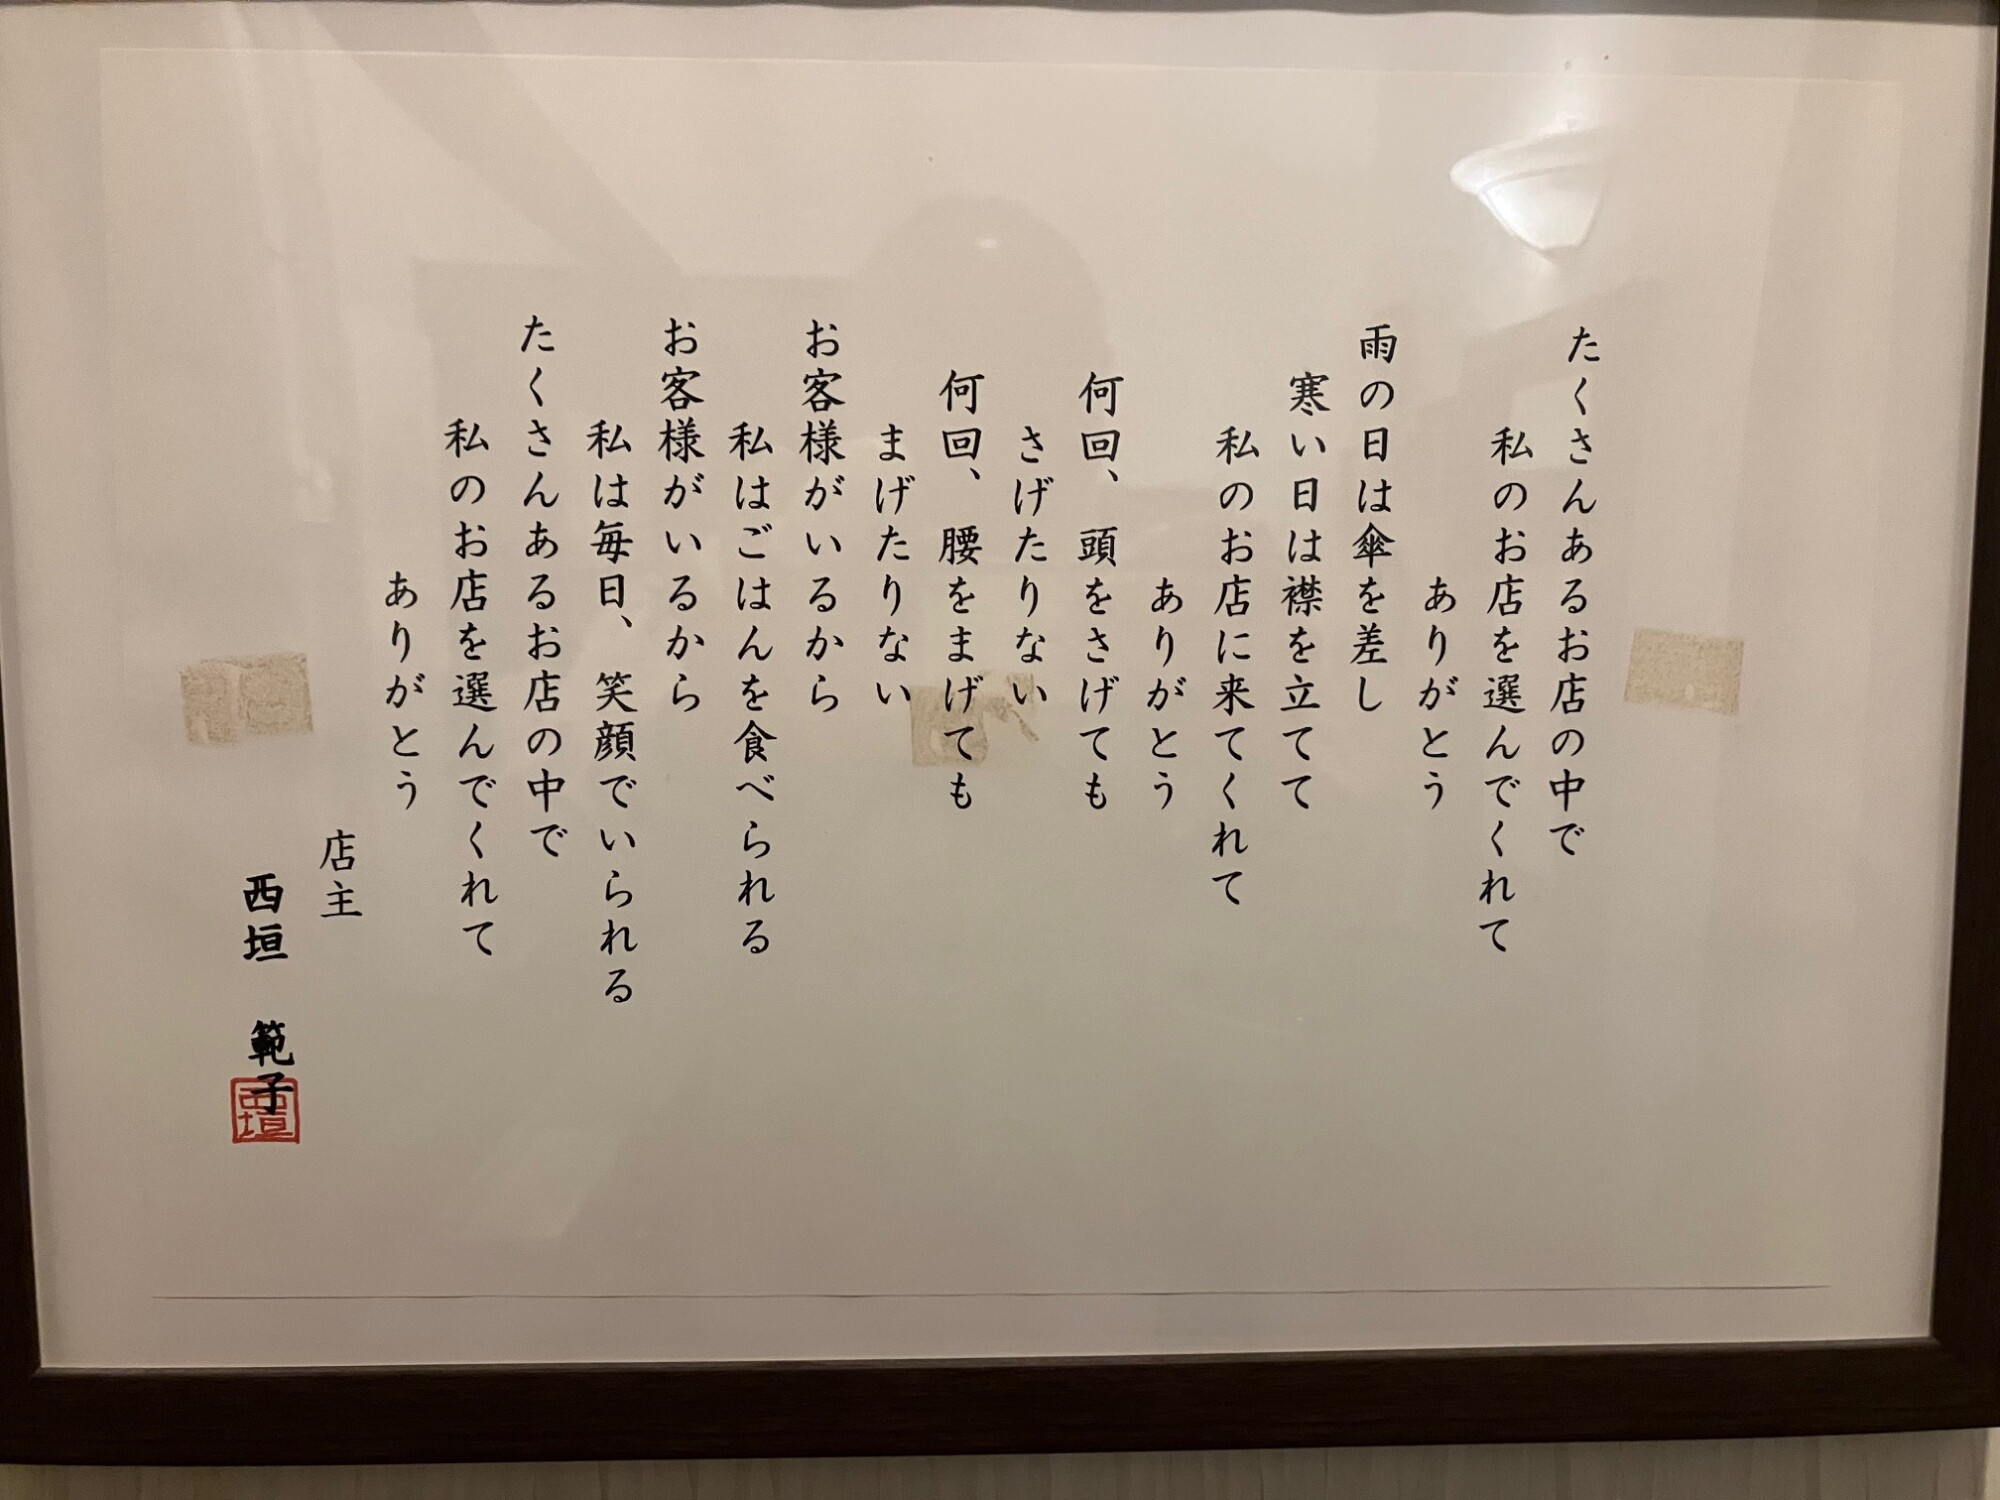 たくさんあるお店の中で
私のお店を選んでくれて
ありがとう
雨の日は傘を差し
寒い日は襟を立てて
私のお店に来てくれて
ありがとう
何回、頭をさげても
さげたりない
何回、腰をまげても
まげたりない
お客様がいるから
私はごはんを食べられる
お客様がいるから
私は毎日、笑顔でいられる
たくさんあるお店の中で
私のお店を選んでくれて
ありがとう
店主
西垣 範子
西垣